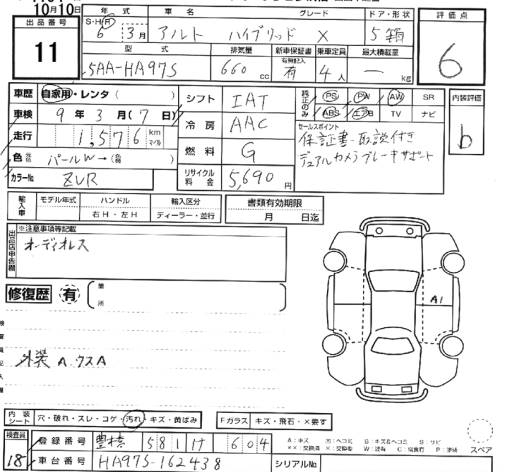 10月10日
出品番号 11
年式 車名 グレード ドア・形状
S・H・R 6年 3月 アルト ハイブリッド X 5 箱
評価点 6
型式 排気量 新車保証書 乗車定員 最大積載量
5AA-HA97S 660 cc 有 4人 — kg
車歴 自家用・レンタ( ) シフト IAT
純正のみ PS PW AW SR
ABS エアB TV ナビ
内装評価 b
車検 9年 3月 (7日) 冷房 AAC
セールスポイント
保証書・取説付き
デュアルカメラブレーキサポート
走行 1,576 km マイル 燃料 G
色 パールW→色( )
カラーNo ZVR リサイクル料金 5,690円
輸入車 モデル年式 ハンドル 輸入区分 書類有効期限
右H・左H ディーラー・並行 月 日迄
出品店申告欄 ※注意事項等記載
オーディオレス
修復歴 有 箇所
A1
外装ヘウスA
内装シート 穴・破れ・スレ・コゲ・汚れ・キズ・黄ばみ Fガラス キズ・飛石・×要す
検査員 18
登録番号 豊橋 581 け 604
車台番号 HA97S-162438 シリアルNo
スペア